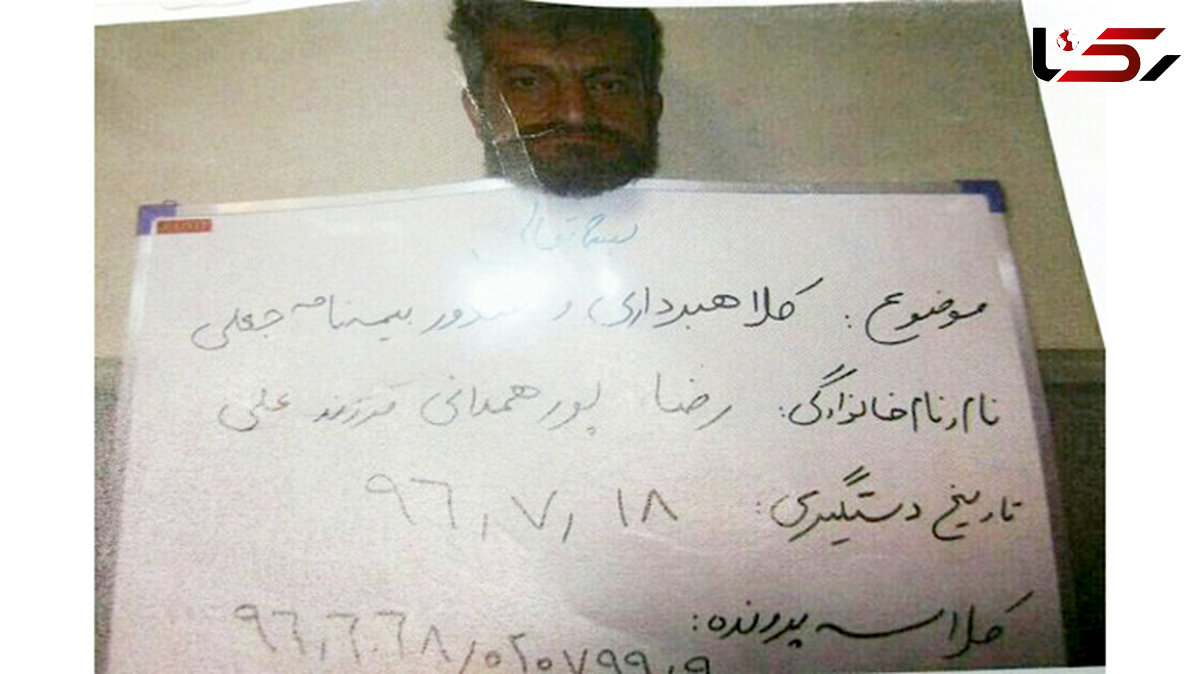 رکنا
بسمه تعالی
موضوع: کلاهبرداری و صدور بیمه نامه جعلی
نام و نام خانوادگی: رضا پورهمدانی فرزند علی
تاریخ دستگیری: ۹۶٫۷٫۱۸
کلاسه پرونده: